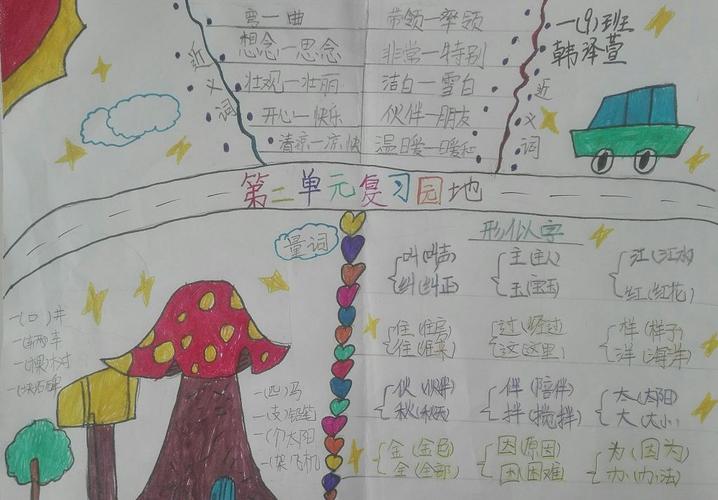 弯一曲
想念一思念
壮观一壮丽
开心一快乐
清凉一凉快
带领一率领
非常一特别
洁白一雪白
伙伴一朋友
温暖一暖和
近义词
近义词
一(9)班
韩泽萱
第二单元复习园地
量词
一(口)井
一(辆)车
一(棵)树
一(块)石碑
一(匹)马
一(支)铅笔
一(个)太阳
一(架)飞机
形似字
叫(叫声) 主(主人) 江(江湖)
纠(纠正) 玉(宝玉) 红(红花)
住(住房) 过(经过) 样(样子)
往(往来) 这(这里) 洋(海洋)
伙(伙伴) 伴(陪伴) 太(太阳)
秋(秋天) 拌(搅拌) 大(大小)
金(金色) 因(原因) 为(因为)
全(全部) 困(困难) 办(办法)